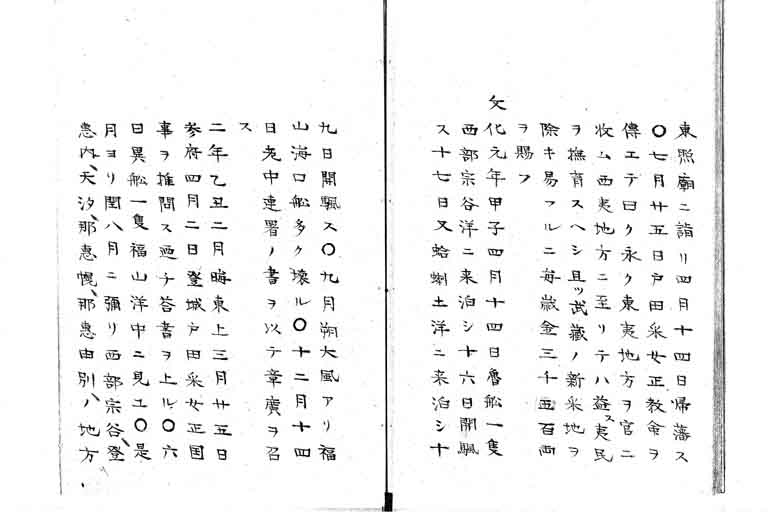 東照廟ニ詣リ四月十四日帰藩ス
〇七月廿五日戸田采女正教命ヲ
傳エテ曰ク永ク東夷地方ヲ官ニ
收ム西夷地方ニ至リテハ益ス夷民
ヲ撫育スヘシ且ツ武藏ノ新采地ヲ
除キ易フルニ毎歳金三千五百両
ヲ賜フ
文化元年甲子四月十四日魯舩一隻
西部宗谷洋ニ来泊シ十六日開颿
ス十七日又蛤蜊土洋ニ来泊シ十
九日開颿ス〇九月朔大風アリ福
山海口舩多ク壊ル〇十二月十四
日老中連署ノ書ヲ以テ章廣ヲ召
ス
二年乙丑二月晦東上三月廿五日
参府四月二日登城戸田采女正国
事ヲ推問ス廼チ答書ヲ上ル〇六
日異舩一隻福山洋中ニ見ユ〇是
月ヨリ閏八月ニ彌リ西部宗谷、登
惠内、天汐、那惠幌、那惠由別、ノ地方